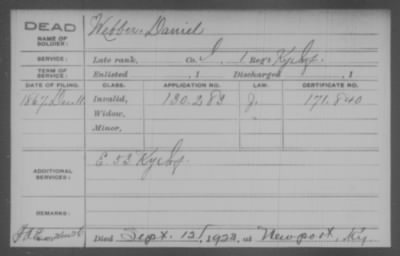 DEAD
NAME OF SOLDIER: Webber, Daniel
SERVICE: Late rank, Co. I, 1 Reg't Ky. Inf.
TERM OF SERVICE: Enlisted , 1 Discharged , 1
DATE OF FILING. CLASS. APPLICATION NO. LAW. CERTIFICATE NO.
1867 Dec 11 Invalid, 130.283 171.840
Widow,
Minor,
ADDITIONAL SERVICES: E. 53 Ky. Inf.
REMARKS:
Died Sept. 12, at Newport, Ky.